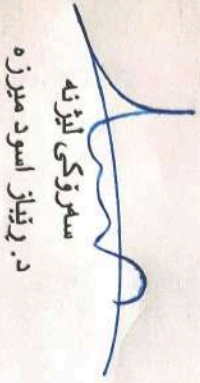 سەرۆکی لیژنە
د. ڕێباز اسود میرزە